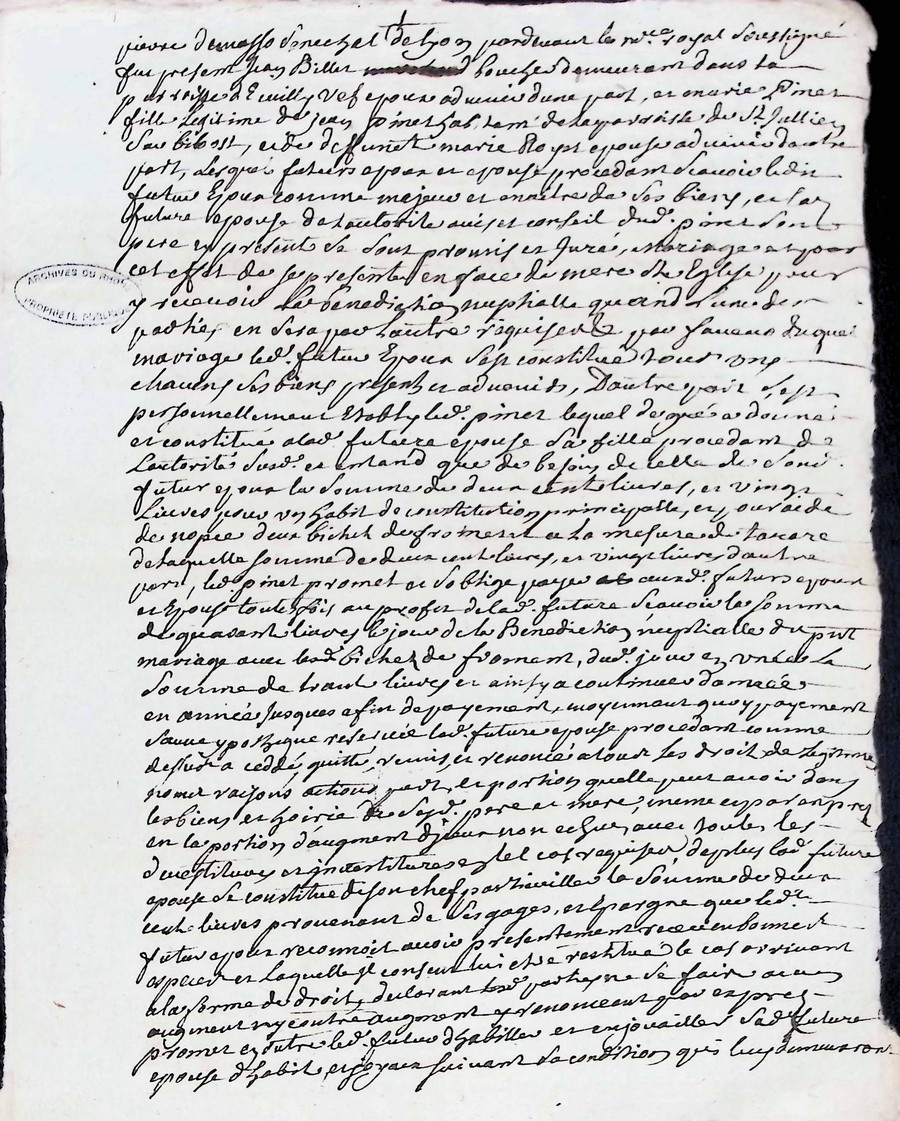 pierre demasso senechal de Lyon pardevant le nre royal soussigné
fut present Jean Billet boucher demeurant dans la
parroisse d'Eveilly vef epoux advenir dune part, et marie Pinet
fille legitime de jean pinet habitant de la parroisse de St Jullien
sur bibost, et de deffunct marie epouse advenir dautre
part, Lesquels futurs epoux et epouse procedant Scavoir ledit
futur Epoux comme majeur et maitre de Ses biens, et la
future epouse de Lautorité avis et conseil dud. pinet Son
pere cy present Se Sont promis et Juré, mariage et par
cet effet de Se presenter en face de mere Ste Eglise pour
ARCHIVES DU RHONE
PROPRIETE PUBLIQUE
y recevoir La benediction nuptialle quand L'une des
parties en Sera par Lautre requise & par faveur duquel
mariage led. futur Epoux Sest constitué tous uns
chacuns Ses biens presents et advenirs, Dautre part Sest
personnellement Etably led. pinet lequel de gré a donné
et constitué a lad. future epouse Sa fille procedant de
Lautorité Susd. et entand que de besoin de celle de Sond.
futur epoux la Somme de deux cent livres, et vingt
Livres pour un habit de constitution principalle, et, pour aide
de nopce deux bichet de froment a la mesure de tarare
de laquelle Somme de deux cent livres, et vingt livres d'autre
part, led. pinet promet et S'oblige payer auxd. futurs epoux
et Epouse toutefois au profit de lad. future Scavoir la Somme
de quarant livres le jour de la Benediction nuptialle du pnt
mariage avec lesd. bichez de froment, dud. jour en un an La
Somme de trant livres et ainsy a continuer dannée
en année Jusques a fin de payement, moyennant quoy payement
Sauve ypothique reservée lad. future epouse procedant comme
dessus a ceddé, quitté, remis, et renoncé a tous les droit de Legitime
noms raisons actions part, et portion quelle peut avoir dans
les biens et hoirie de Sesd. pere et mere, meme en par exprez
en la portion d'augment non echus, avec toutes les
devestitures et investitures en tel cas requises, de plus lad. future
epouse Se constitue de Son chef particullier la Somme de deux
cent livres provenant de Ses gages, et Epargne que led.
futur epoux reconnoit avoir presentement receu en bonnes
especes et laquelle il consent lui estre restitué le cas arrivant
a la forme de droit, declarant lesd. parties ne Se faire aucun
augment ny contre augment y renonceant par exprez
promet en outre led. futur d'habiller et enjoailler Sad. future
epouse d'habit et joyaux Suivant Sa condition qui luy demeureront